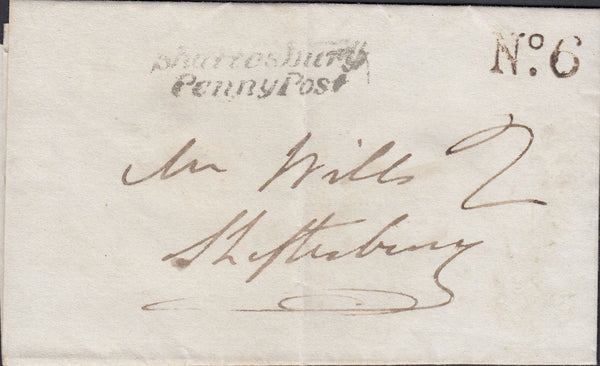 Shaftesbury
Penny Post
No. 6
Mr Wills
2
Shaftesbury